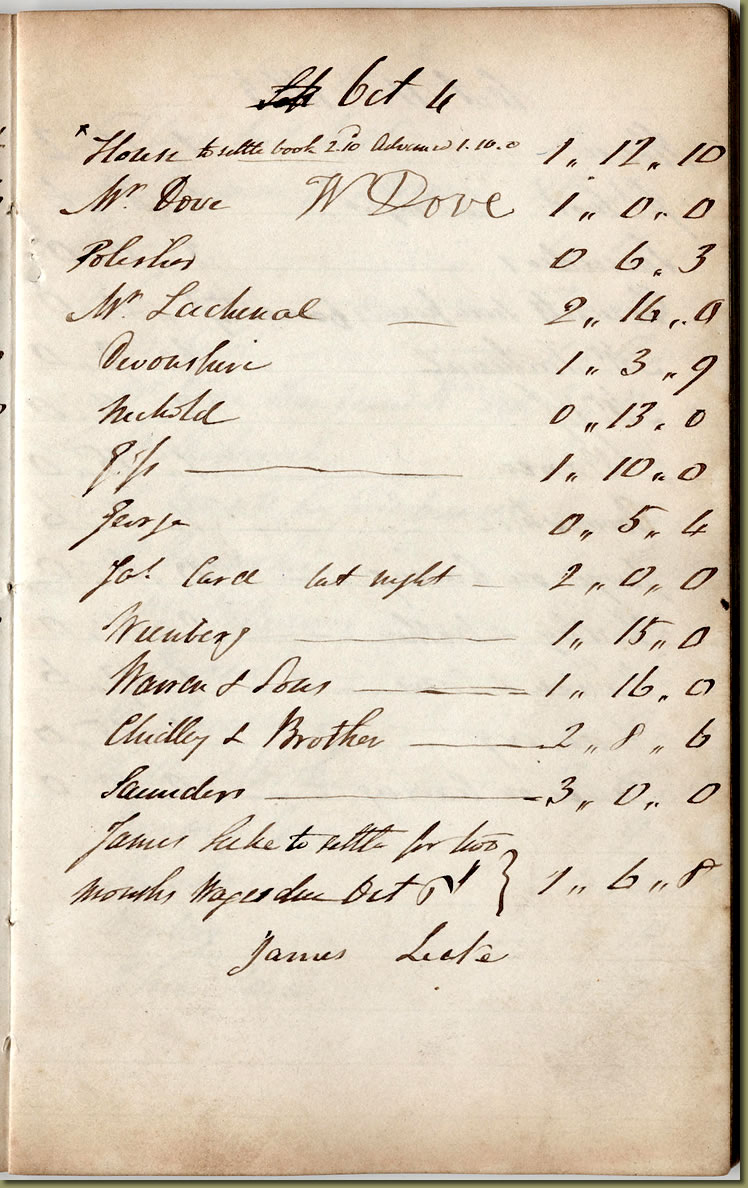 Oct 4
* House to settle book 2.10 Advance 1.10.0 1 〃 12 〃 10
Mr. Dove W Dove 1 〃 0 〃 0
Polisher 0 6 〃 3
Mr. Lachenal — 2 〃 16 〃 0
Devonshire 1 〃 3 〃 9
Nickold 0 〃 13 〃 0
1 〃 10 〃 0
George 0 〃 5 〃 4
Jos. Card last night — 2 〃 0 〃 0
1 〃 15 〃 0
Warren & Sons — 1 〃 16 〃 0
Chidley & Brother — 2 〃 8 〃 6
Saunders — 3 〃 0 〃 0
James Leeke to settle for two
months Wages due Oct } 1 〃 6 〃 8
James Leeke